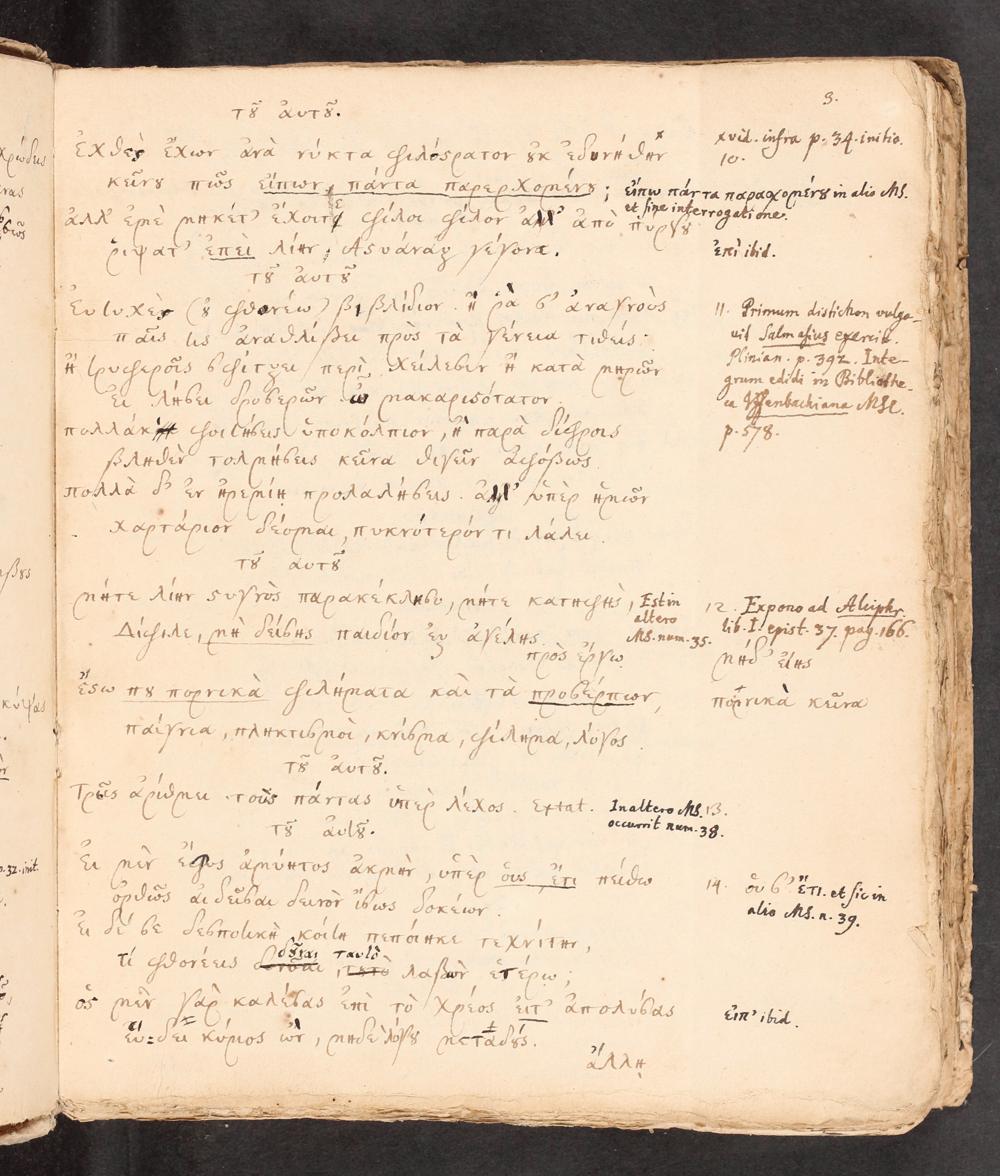 3.
τȣ͂ ἀυτȣ͂.
Ἐχθὲς ἔχων ἀνὰ νύκτα φιλόστρατον ȣ̓κ ἐδυνήθην
κεῖνȣ πῶς εἴπων, πάντα παρερχομένȣ ;
ἀλλ' ἐμὲ μηκέτ' ἔχοιτε φίλοι φίλον ἀλλ' ἀπὸ πύργȣ
ῥίψατ' ἐπεὶ λίην, Ἀστυάναξ γέγονα.
x vid. infra p. 34. initio.
10.
εἴπω πάντα παραχομένȣ in alio MS.
et sine interrogatione.
ἐπὶ ibid.
τȣ͂ ἀυτȣ͂
Ἐυτυχὲς (ȣ̓ φθονέω) βιβλίδιον . ἦ ῥά σ' ἀναγνοὺς
παῖς τις ἀναθλίψει πρὸς τὰ γένεια τιθείς.
ἢ τρυφεροῖς σφίγξει περὶ χείλεσιν ἢ κατὰ μηρῶν
Ἐι λήσει δροσερῶν . ὦ μακαρισότατον.
πολλάκι φοιτήσεις ὑποκόλπιον, ἢ παρὰ δίφροις
βληθὲν τολμήσεις κεῖνα θιγεῖν ἀφόβως.
πολλὰ δ' ἐν ἠρεμίῃ προλαλήσεις . ἀλλ' ὑπὲρ ἡμῶν
χαρτάριον δέομαι, πυκνότερόν τι λάλει.
11. Primum distichon vulga-
vit Salmasius exercit.
Plinian. p. 392. Inte-
grum edidi in Bibliothe-
ca Uffenbachiana MSC.
p. 578.
τȣ͂ ἀυτȣ͂
μήτε λίην στυγνὸς παρακέκλισο, μήτε κατηφὴς,
Δίφιλε, μὴ δείσῃς παιδίον ἐξ ἀγέλης
πρὸς ἔργω.
ἔστω πȣ πορνικὰ φιλήματα καὶ τὰ προσέρπιον,
παίγνια, πληκτισμοὶ, κνίσμα, φίλημα, λόγος.
Est in
altero
MS. num. 35.
12. Expono ad Alciphr.
lib. I. epist. 37. pag. 166.
μήδ' εἴης
πορνικὰ κεῖνα
τȣ͂ ἀυτȣ͂.
Τρεῖς ἀρίθμει τοὺς πάντας ὑπὲρ λέχος. Extat.
In altero MS. 13.
occurrit num. 38.
τȣ͂ ἀυτȣ͂.
Ἐι μὲν ἔφυς ἀμύητος ἀκμὴν, ὑπὲρ ȣς ἔτι πείθω
ὀρθῶς αἰδεῖσαι δεινὸν ἴσως δοκέων.
Ἐι δέ σε δεσποτικὴ κοίτη πεπόιηκε τεχνίτην,
τί φθονέεις δȣ͂ναι ταυτὸ λαβὼν ἑτέρω;
ὃς μὲν γὰρ καλέσας ἐπὶ τὸ χρέος εἶτ' ἀπολύσας
ἕυδει κύριος ὢν, μηδὲ λόγȣ μεταδȣς.
ἄλλῃ
14. ȣ̓͂ σ' ἔτι. et sic in
alio MS. n. 39.
εἶπ' ibid.